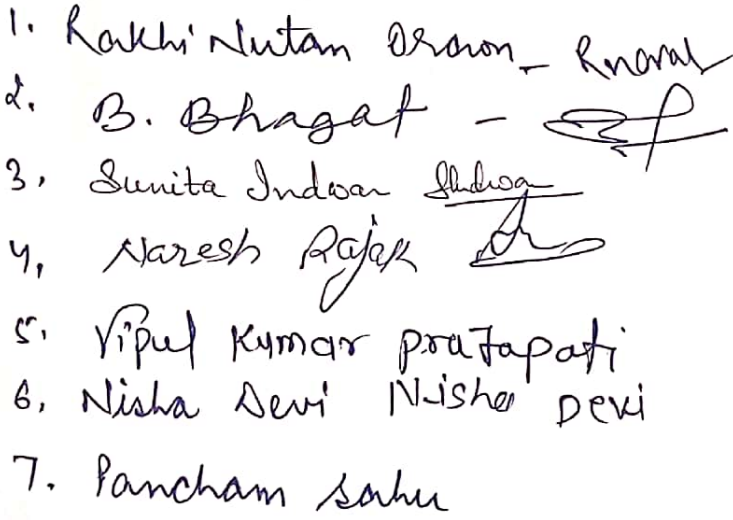 1. Rakhi Nutan Oraon - Rnoraon
2. B. Bhagat -
3. Sunita Indwar SIndwar
4, Naresh Rajak
5. Vipul Kumar Prajapati
6, Nisha Devi Nisha Devi
7. Pancham sahu